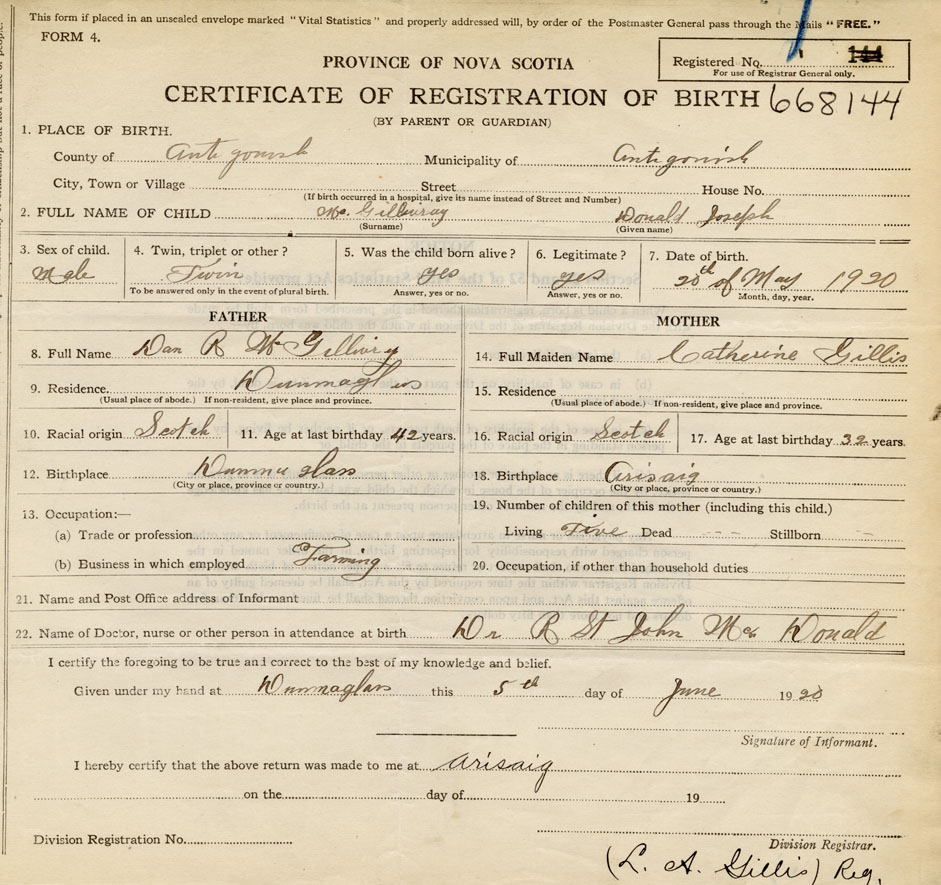 This form if placed in an unsealed envelope marked "Vital Statistics" and properly addressed will, by order of the Postmaster General pass through the Mails "FREE."
FORM 4.
Registered No. 144
For use of Registrar General only.
PROVINCE OF NOVA SCOTIA
CERTIFICATE OF REGISTRATION OF BIRTH 668144
(BY PARENT OR GUARDIAN)
1. PLACE OF BIRTH.
County of Antigonish Municipality of Antigonish
City, Town or Village Street House No.
(If birth occurred in a hospital, give its name instead of Street and Number)
2. FULL NAME OF CHILD Mc Gillivray Donald Joseph
(Surname) (Given name)
3. Sex of child. 4. Twin, triplet or other? 5. Was the child born alive? 6. Legitimate? 7. Date of birth.
Male Twin yes yes 20th of May 1920
To be answered only in the event of plural birth. Answer, yes or no. Answer, yes or no. Month, day, year.
FATHER MOTHER
8. Full Name Dan R McGillivry 14. Full Maiden Name Catherine Gillis
9. Residence Dunmaglass 15. Residence
(Usual place of abode.) If non-resident, give place and province. (Usual place of abode.) If non-resident, give place and province.
10. Racial origin Scotch 11. Age at last birthday 42 years. 16. Racial origin Scotch 17. Age at last birthday 32 years.
12. Birthplace Dunmaglass 18. Birthplace Arisaig
(City or place, province or country.) (City or place, province or country.)
13. Occupation:— 19. Number of children of this mother (including this child.)
(a) Trade or profession Living Five Dead --- Stillborn --
(b) Business in which employed Farming 20. Occupation, if other than household duties
21. Name and Post Office address of Informant
22. Name of Doctor, nurse or other person in attendance at birth Dr R St John Mac Donald
I certify the foregoing to be true and correct to the best of my knowledge and belief.
Given under my hand at Dunmaglass this 5th day of June 1920
Signature of Informant.
I hereby certify that the above return was made to me at Arisaig
on the day of 19
Division Registration No.
Division Registrar.
(L. A. Gillis) Reg.